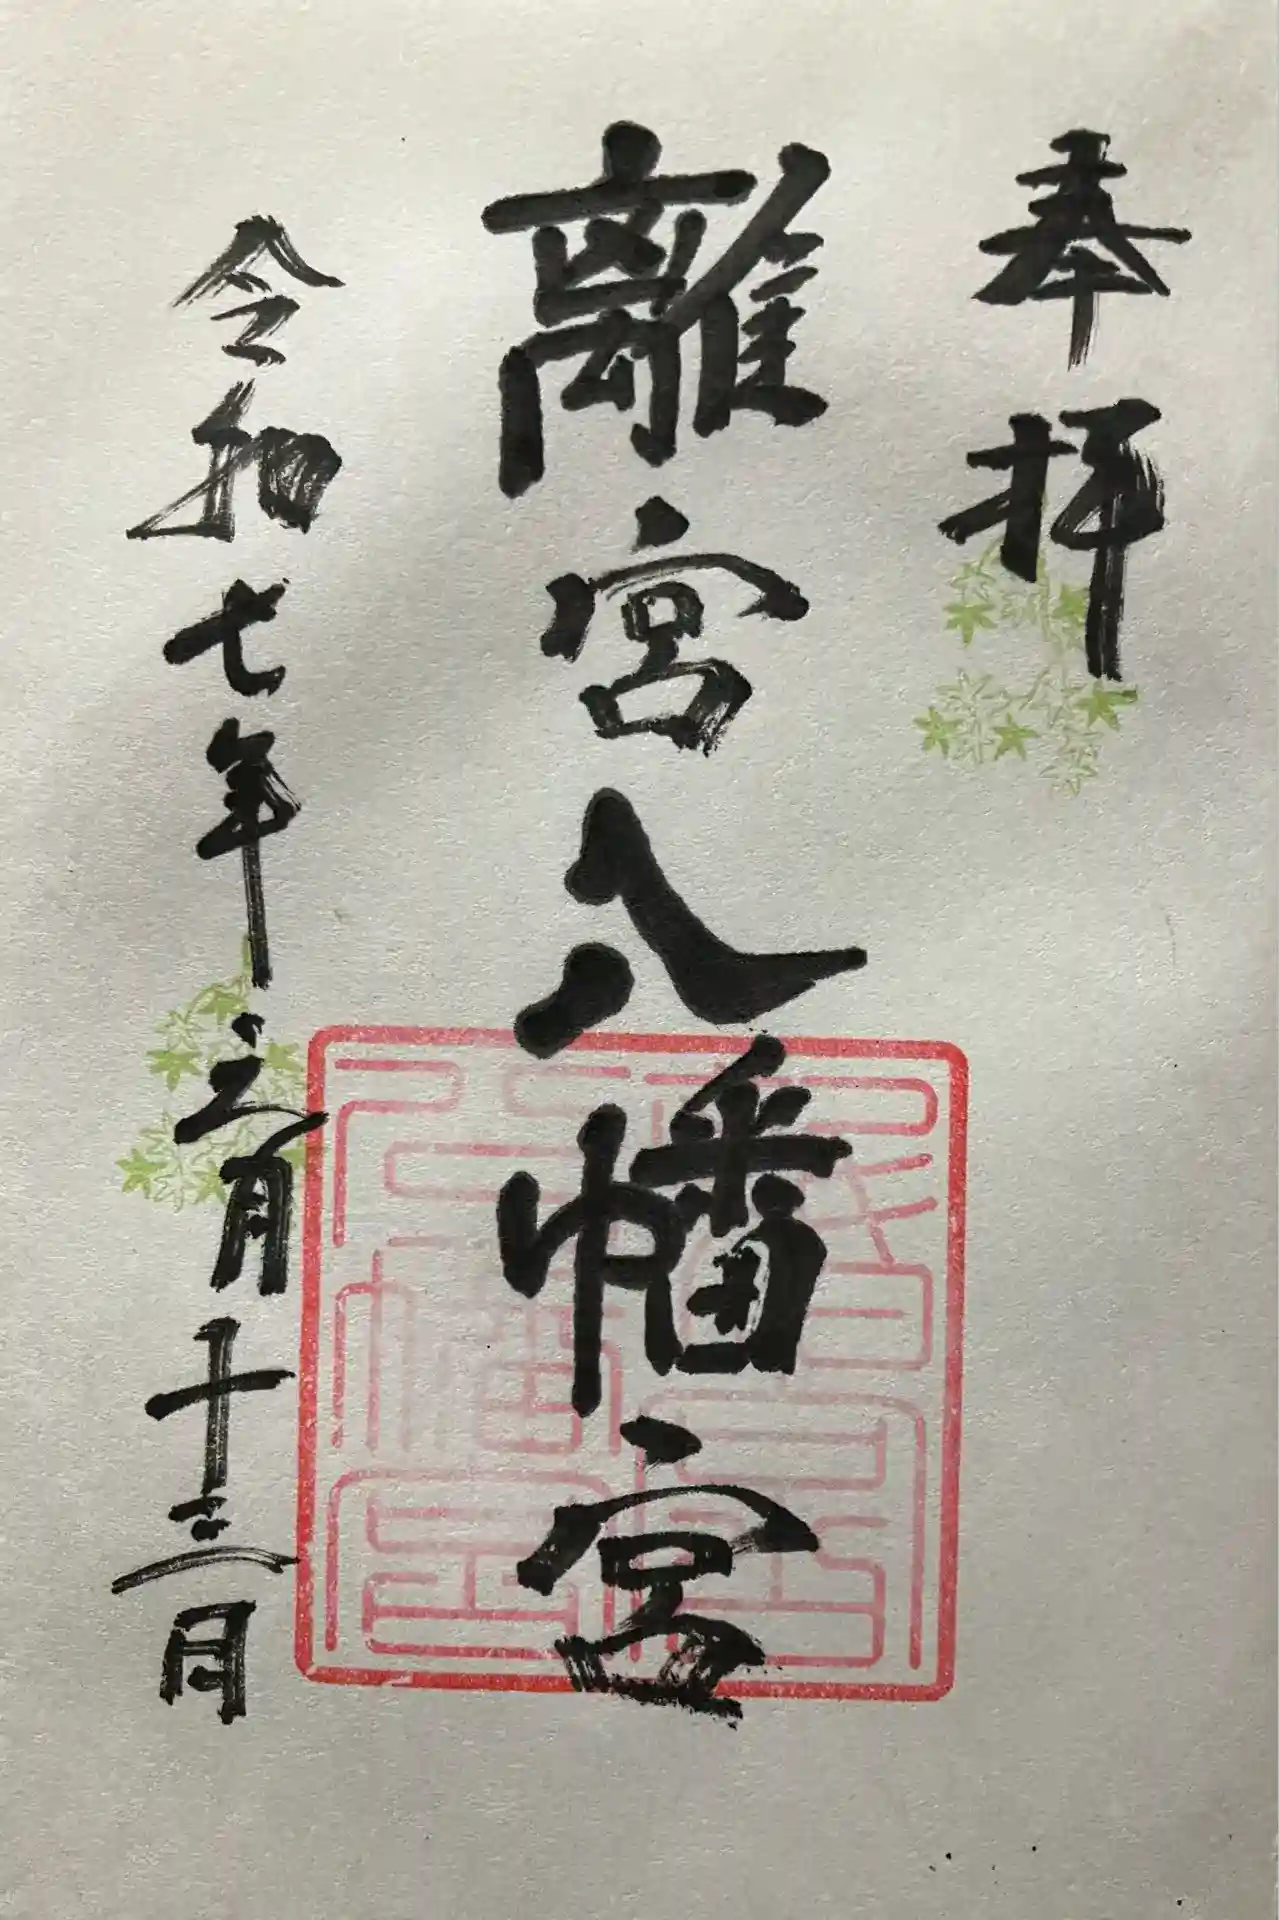 奉拝
離宮八幡宮
令和七年三月十三日